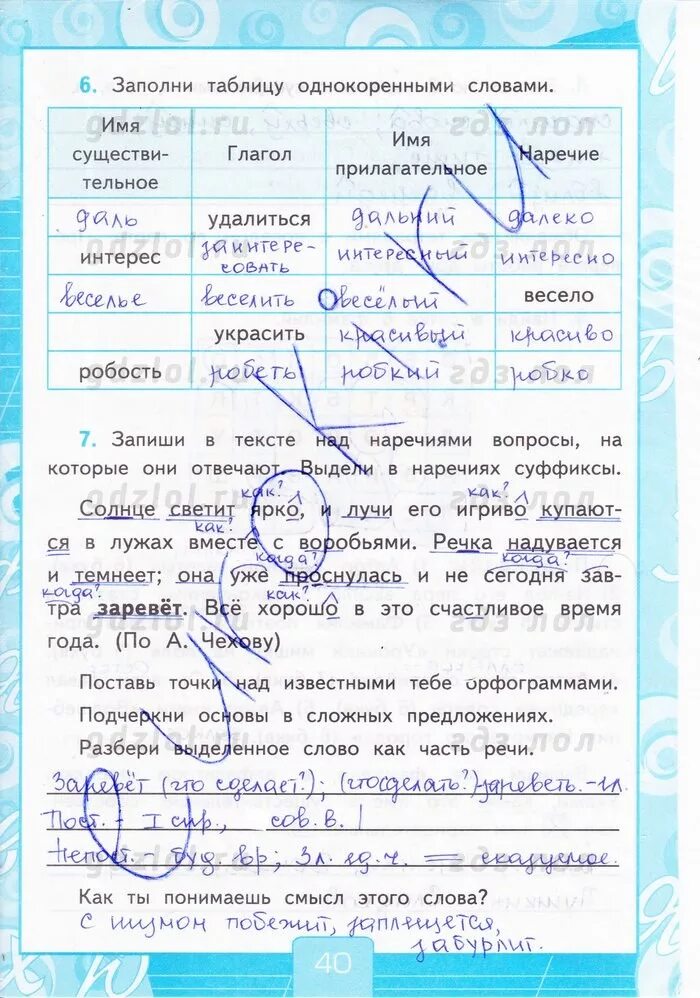 6. Заполни таблицу однокоренными словами.
Имя существи-тельное Глагол Имя прилагательное Наречие
даль удалиться дальний далеко
интерес заинтере-совать интересный интересно
веселье веселить весёлый весело
украсить красивый красиво
робость робеть робкий робко
7. Запиши в тексте над наречиями вопросы, на
которые они отвечают. Выдели в наречиях суффиксы.
как? как?
Солнце светит ярко, и лучи его игриво купают-
как?
ся в лужах вместе с воробьями. Речка надувается
когда? когда?
и темнеет; она уже проснулась и не сегодня зав-
когда? как?
тра заревёт. Всё хорошо в это счастливое время
года. (По А. Чехову)
Поставь точки над известными тебе орфограммами.
Подчеркни основы в сложных предложениях.
Разбери выделенное слово как часть речи.
Заревёт (что сделает?); (что сделать?) зареветь. - гл.
Пост. - I спр., сов. в.
Непост. - буд. вр; 3 л. ед. ч. сказуемое.
Как ты понимаешь смысл этого слова?
с шумом побежит, заплещется,
забурлит.
40
gdzlol.ru
гдз лол